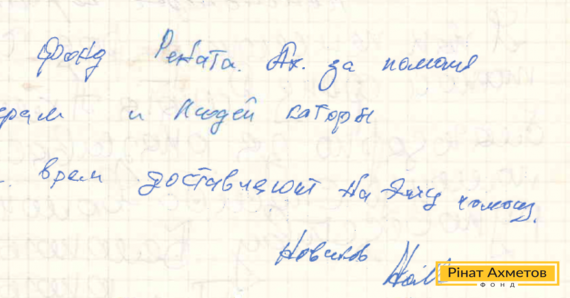 фонд Рената. Ах. за помощь
ерам и людей каторы
врем доставляют на эту помощ.
Новиков
Рінат Ахметов
ФОНД